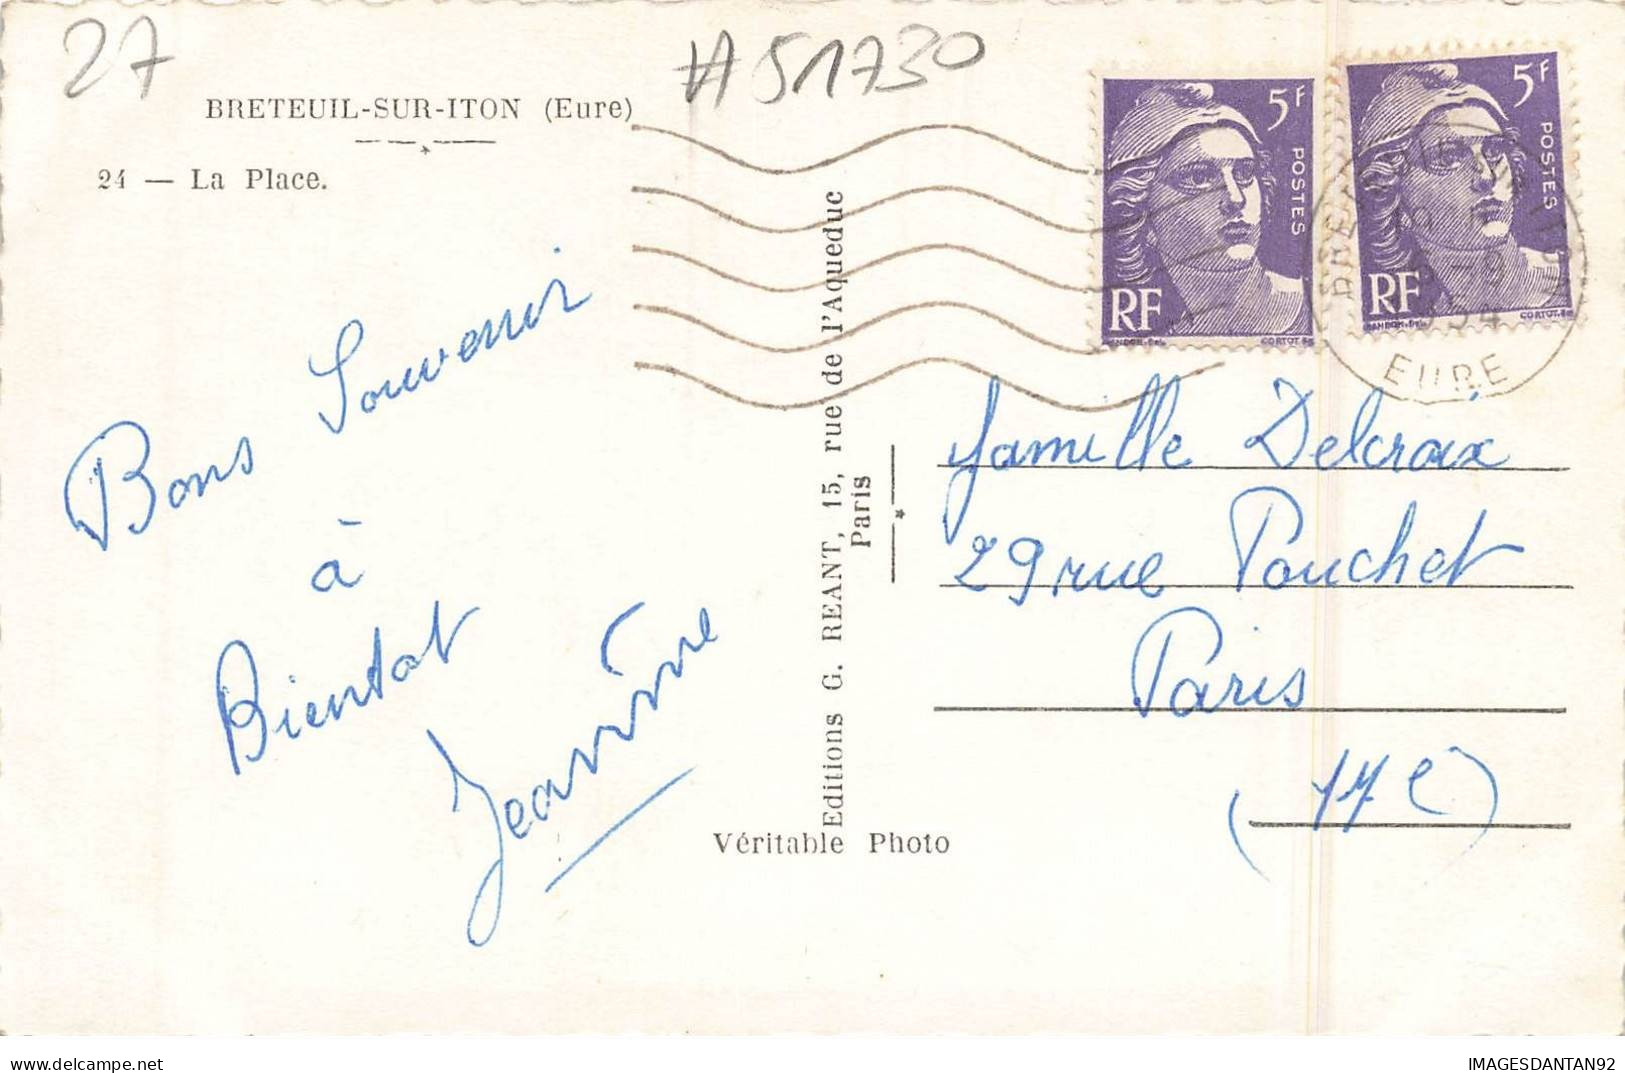 27
#51730
BRETEUIL-SUR-ITON (Eure)
24 — La Place.
Bons Souvenir
à
Bientot
Jeannine
Editions G. REANT, 15, rue de l'Aqueduc
Paris
Véritable Photo
5F
POSTES
RF
CORTOT
5F
POSTES
RF
CORTOT
EURE
famille Delcroix
29 rue Pouchet
Paris
(17 e)
IMAGESDANTAN92
delcampe.net